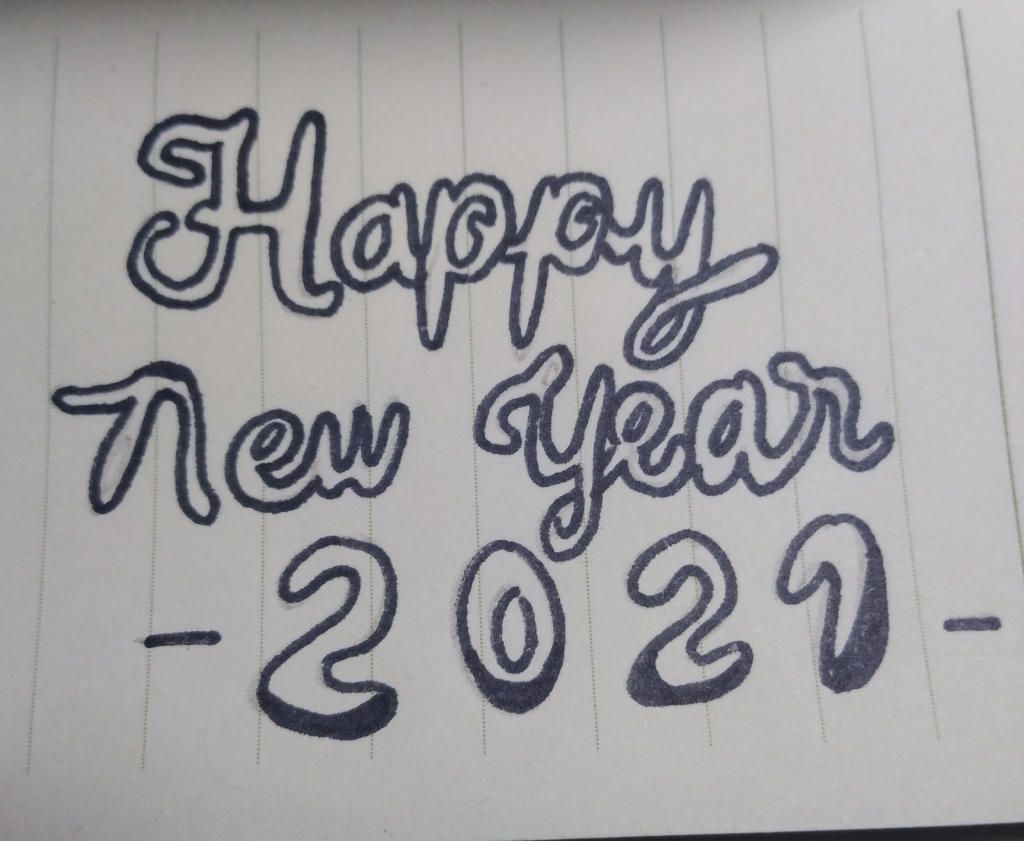 Happy
New Year
- 2021 -